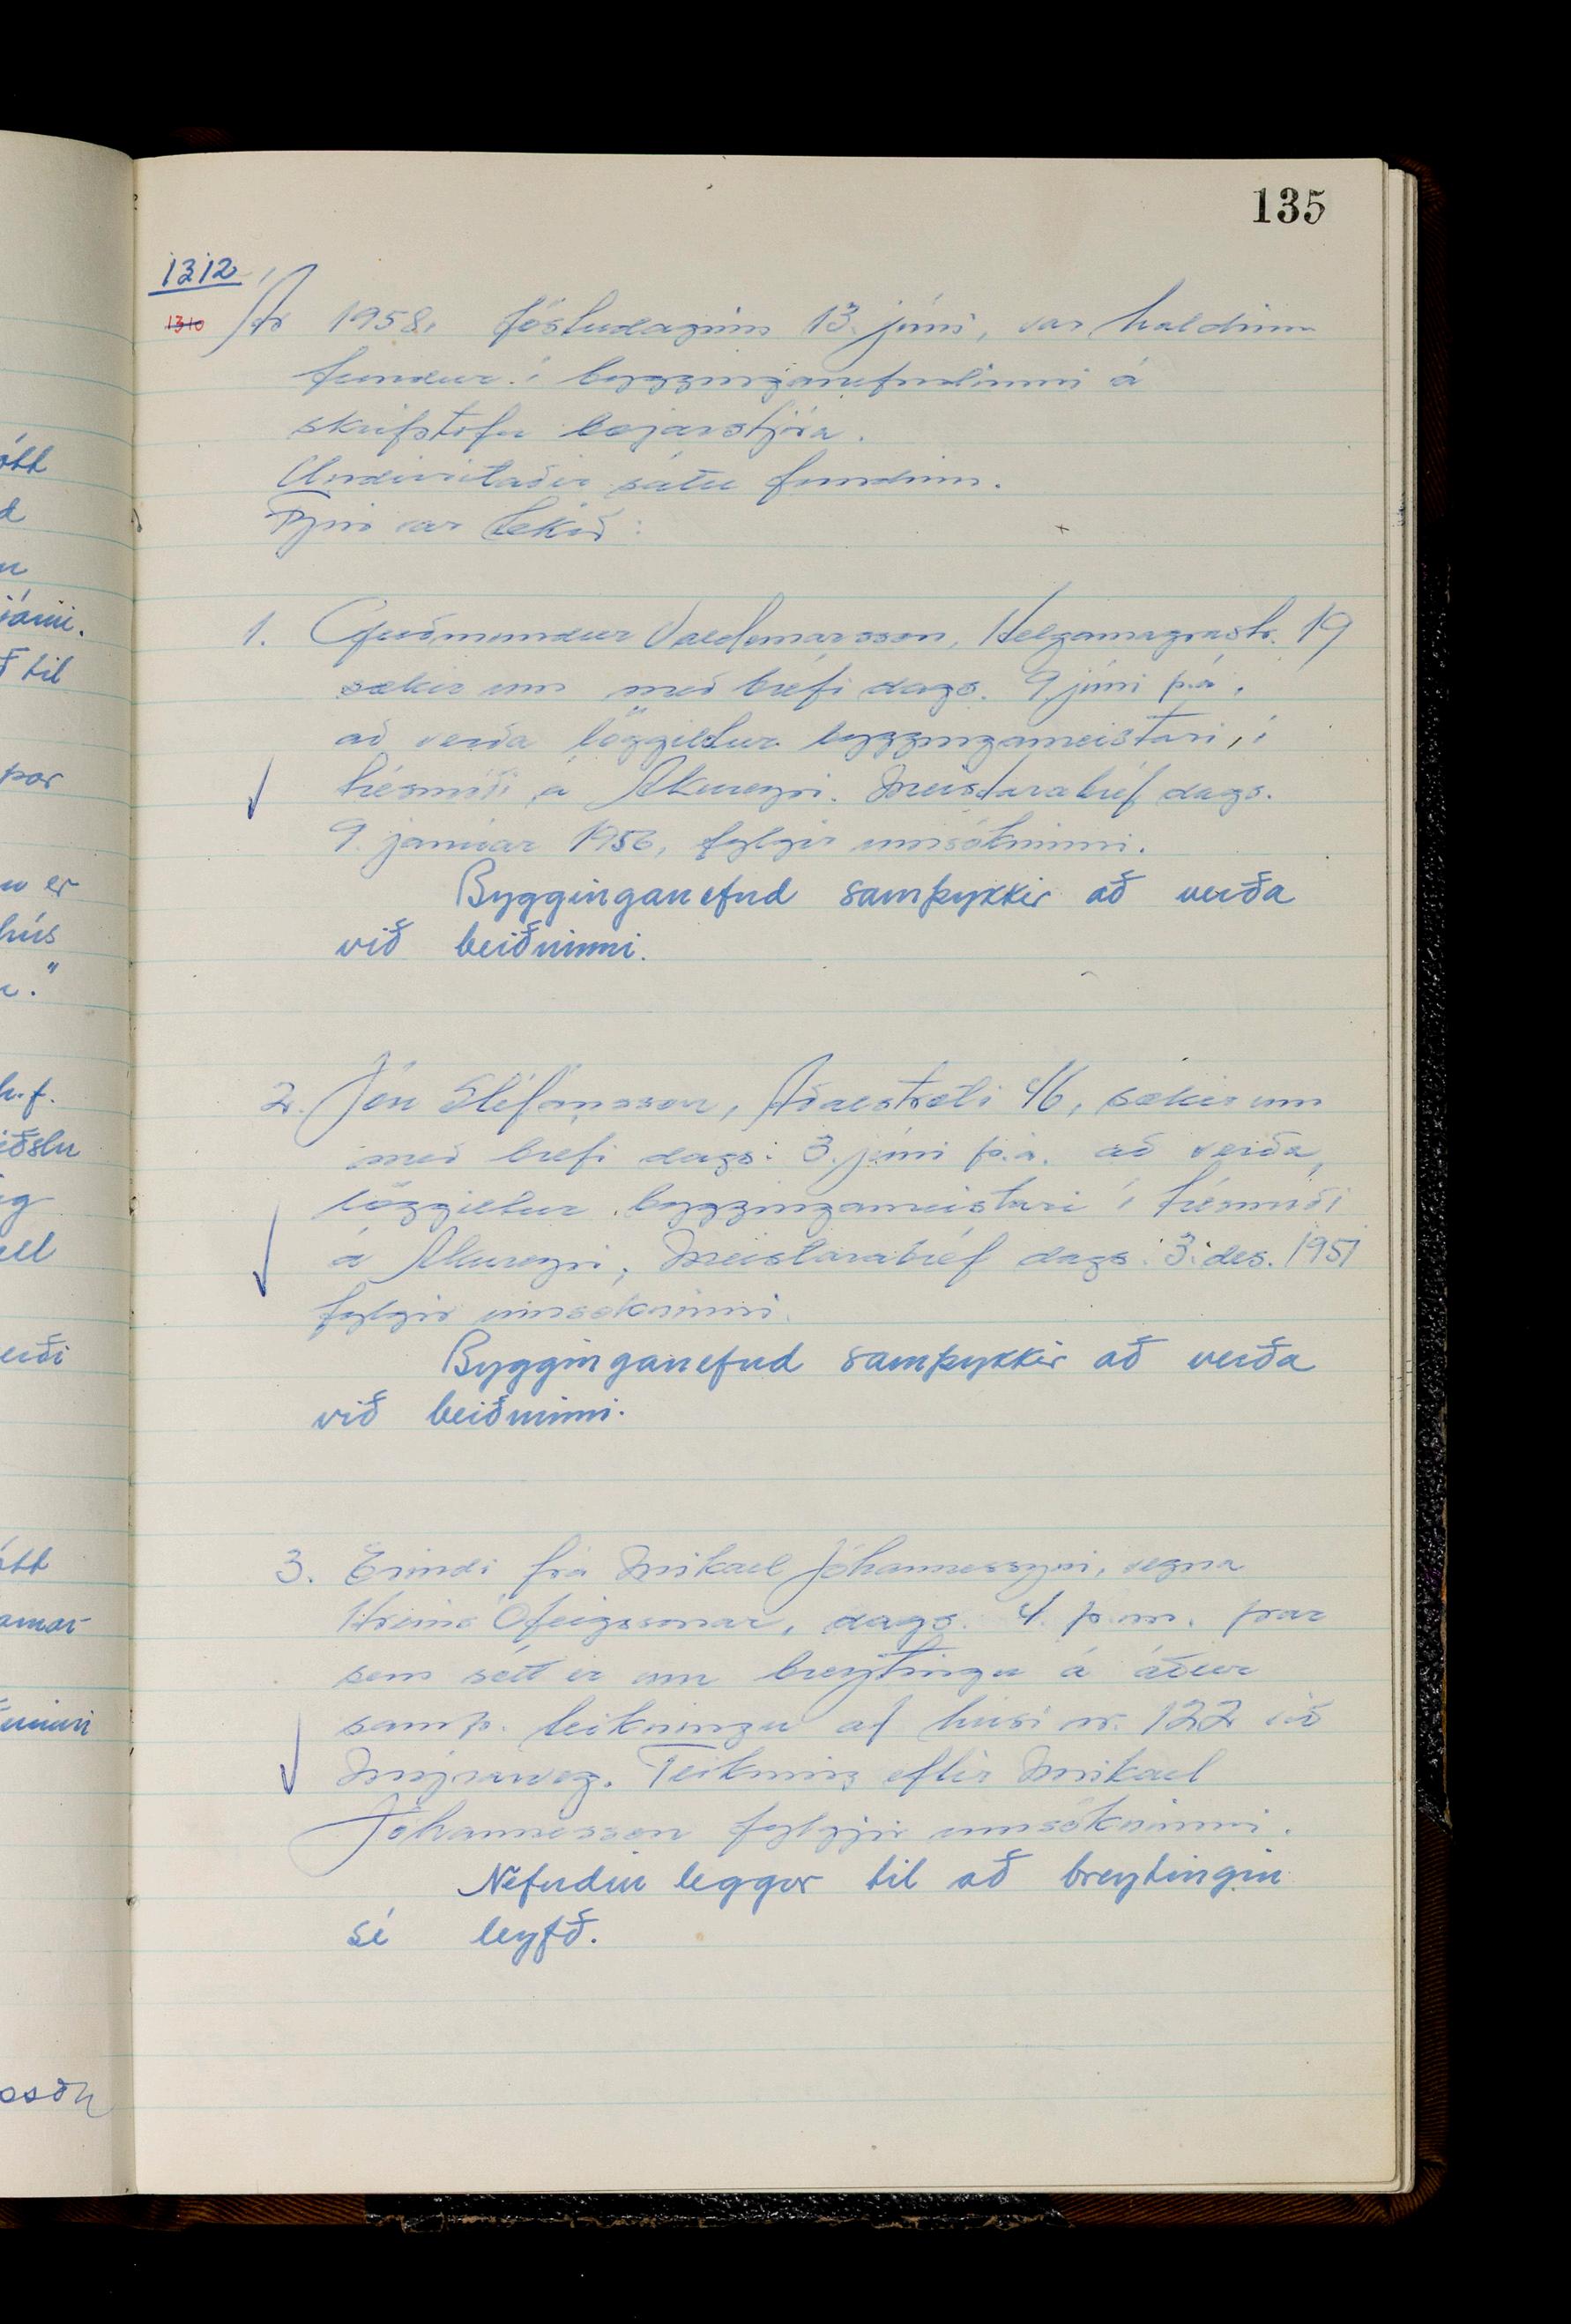 135
1312
1310
Ár 1958, föstudaginn 13. júní, var haldinn
fundur í bygginganefndinni á
skrifstofu bæjarstjóra.
Undirritaðir sátu fundinn.
Fyrir var tekið:
1. Guðmundur Valdemarsson, Helgamagrastr. 19
sækir um með bréfi dags. 9. júní þ.á.
að verða löggiltur byggingameistari, í
trésmíði á Akureyri. Meistarabréf dags.
9. janúar 1956, fylgir umsókninni.
Bygginganefnd samþykkir að verða
við beiðninni.
2. Jón Stefánsson, Aðalstræti 46, sækir um
með bréfi dags. 3. júní þ.á. að verða,
löggiltur byggingameistari í trésmíði
á Akureyri, Meistarabréf dags. 3. des. 1951
fylgir umsókninni.
Bygginganefnd samþykkir að verða
við beiðninni.
3. Erindi frá Mikael Jóhannessyni, vegna
Hreins Ófeigssonar, dags. 4. þ.m. þar
sem sótt er um breytingu á áður
samþ. teikningu af húsi nr. 122 við
Mýraveg. Teikning eftir Mikael
Jóhannesson fylgir umsókninni.
Nefndin leggur til að breytingin
sé leyfð.
ótt
d
til
þar
er
hús
h.f.
ell
ótt